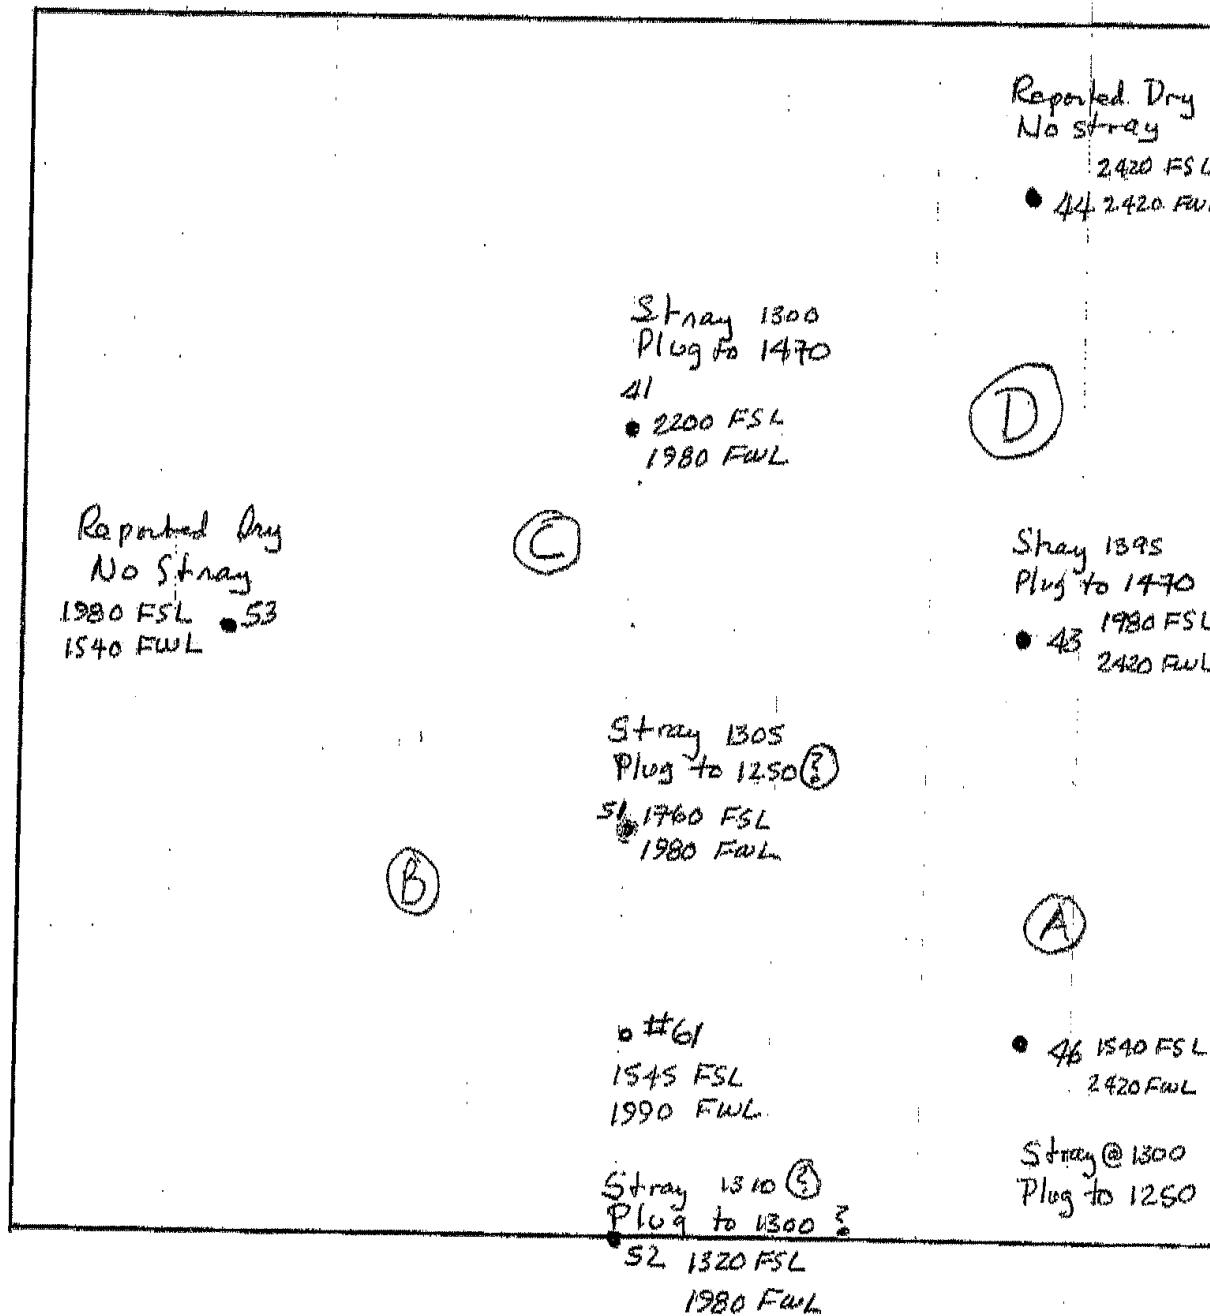 Reported Dry
No stray
2420 FSL
44 2420 FWL
Stray 1300
Plug to 1470
41
2200 FSL
1980 FWL
D
Reported Dry
No Stray
1980 FSL
53
1540 FWL
C
Stray 1395
Plug to 1470
1980 FSL
43
2420 FWL
Stray 1305
Plug to 1250 ?
51 1760 FSL
1980 FWL
B
A
#61
1545 FSL
1990 FWL
46 1540 FSL
2420 FWL
Stray @ 1300
Plug to 1250
Stray 1310 ?
Plug to 1300 ?
52 1320 FSL
1980 FWL